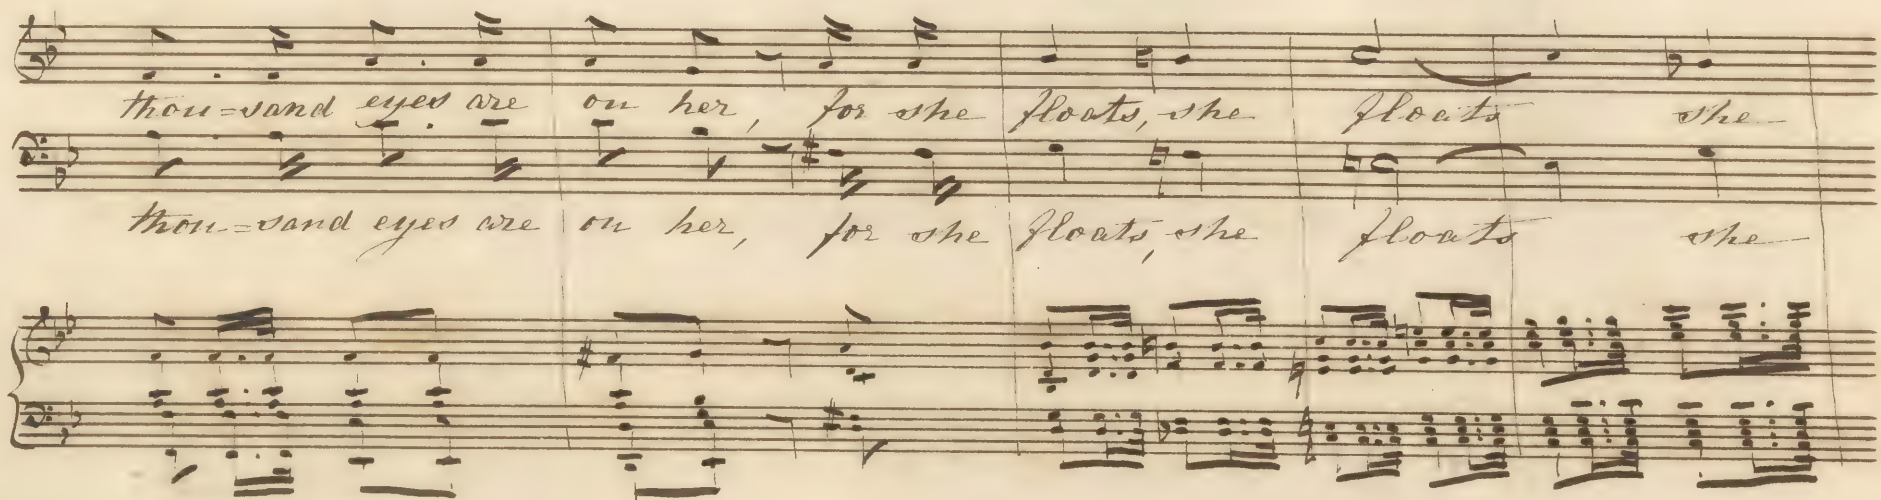 thou=sand eyes are on her, for she floats, she floats she
thou=sand eyes are on her, for she floats, she floats she